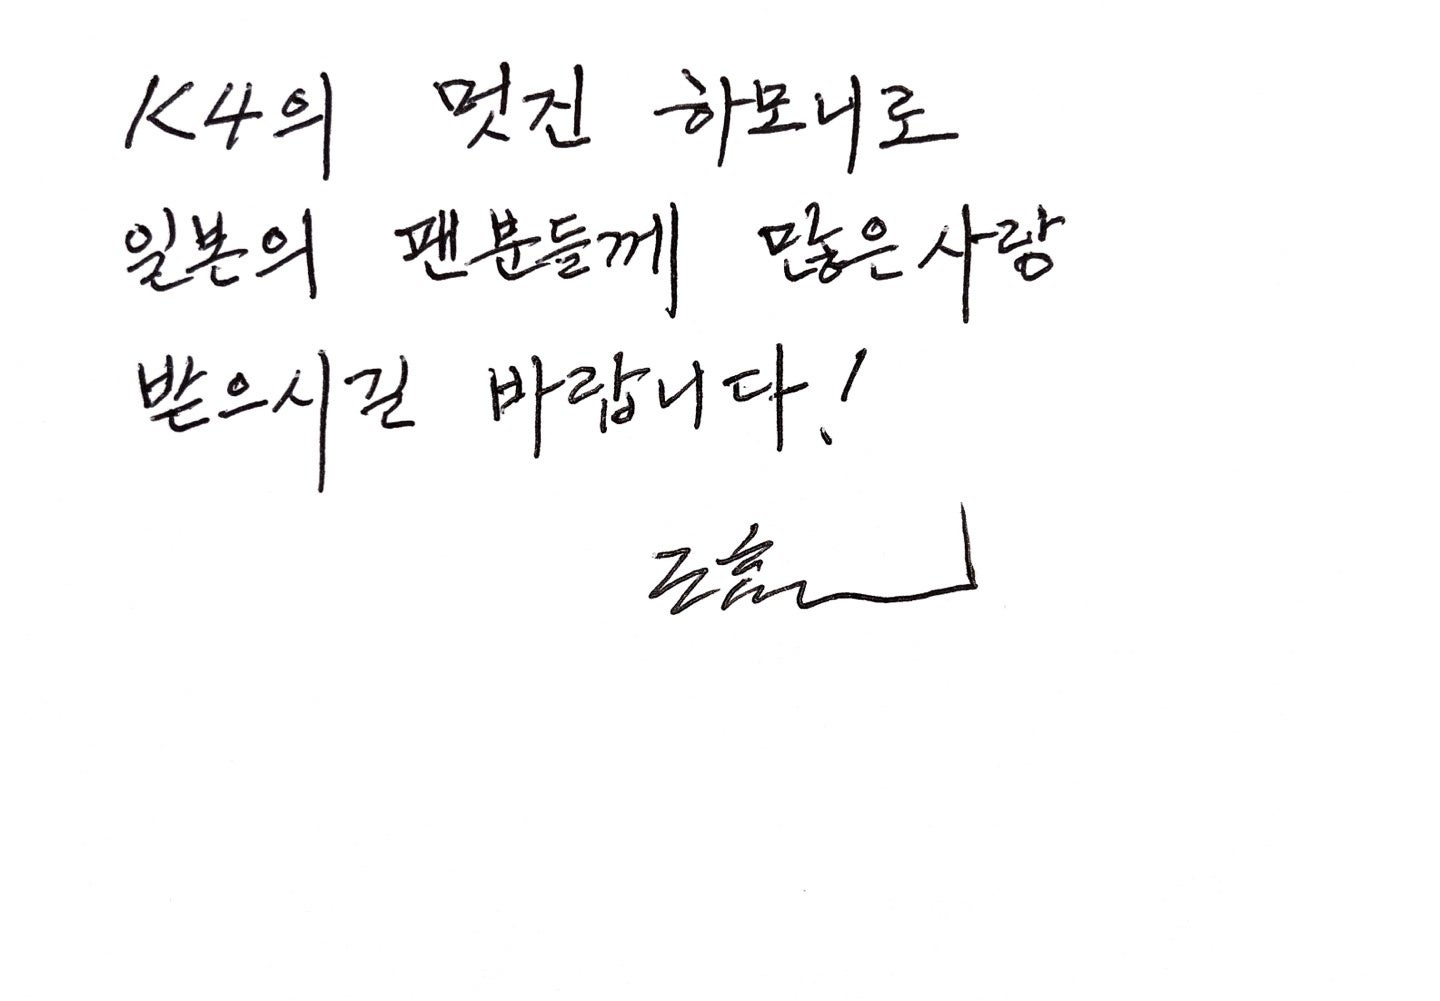 K4의 멋진 하모니로
일본의 팬분들께 많은 사랑
받으시길 바랍니다!